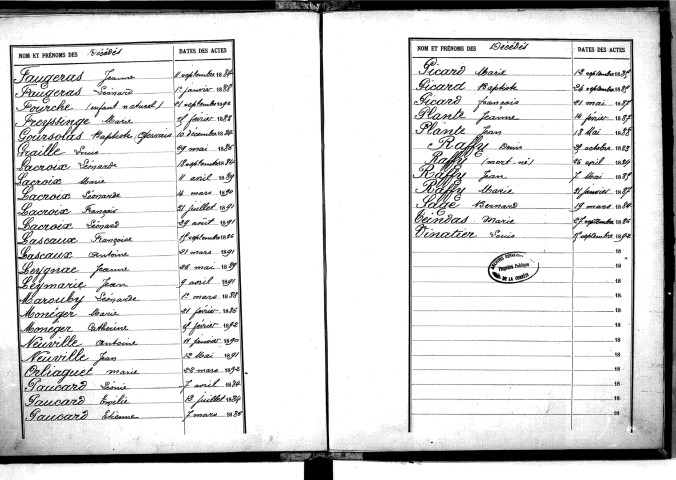 NOM ET PRÉNOMS DES Décédés DATES DES ACTES
Faugeras Jeanne 11 septembre 1884
Faugeras Léonard 1er janvier 1888
Fourche (enfant naturel) 21 septembre 1892
Freyssinge Marie février 1888
Goursolas Baptiste Gervais 10 décembre 1884
Graille Louis 29 mai 1886
Lacroix Léonarde 18 septembre 1884
Lacroix Marie 11 avril 1889
Lacroix Léonarde 14 mars 1890
Lacroix François 21 juillet 1891
Lacroix Léonard 29 août 1891
Lascaux Françoise septembre 1886
Lascaux Antoine 21 mars 1891
Leygnac Jeanne 26 mai 1889
Leymarie Jean 9 avril 1891
Marouby Léonarde 1er mars 1888
Monéger Marie 21 février 1886
Monéger Catherine février 1892
Neuville Antoine 11 janvier 1890
Neuville Jean 12 Mai 1891
Orliaguet Marie 22 mars 1892
Paucard Léonie 7 avril 1884
Paucard Emilie 12 juillet 1884
Paucard Etienne 7 mars 1886
NOM ET PRÉNOMS DES Décédés DATES DES ACTES
Picard Marie 12 septembre
Picard Baptiste 24 septembre
Picard François 21 mai 1887
Plante Jeanne 14 février 1887
Plante Jean 18 Mai 1888
Raffy Denis 29 octobre 1883
Raffy (mort-né) 26 avril 1884
Raffy Jean 7 Mai
Raffy Marie 21 janvier 1887
Sage Bernard 19 mars 1884
Marie 27 septembre 1886
Vinatier Louis septembre 1892
18
18
18
18
18
18
18
18
18
18
18
DE LA CORRÈZE